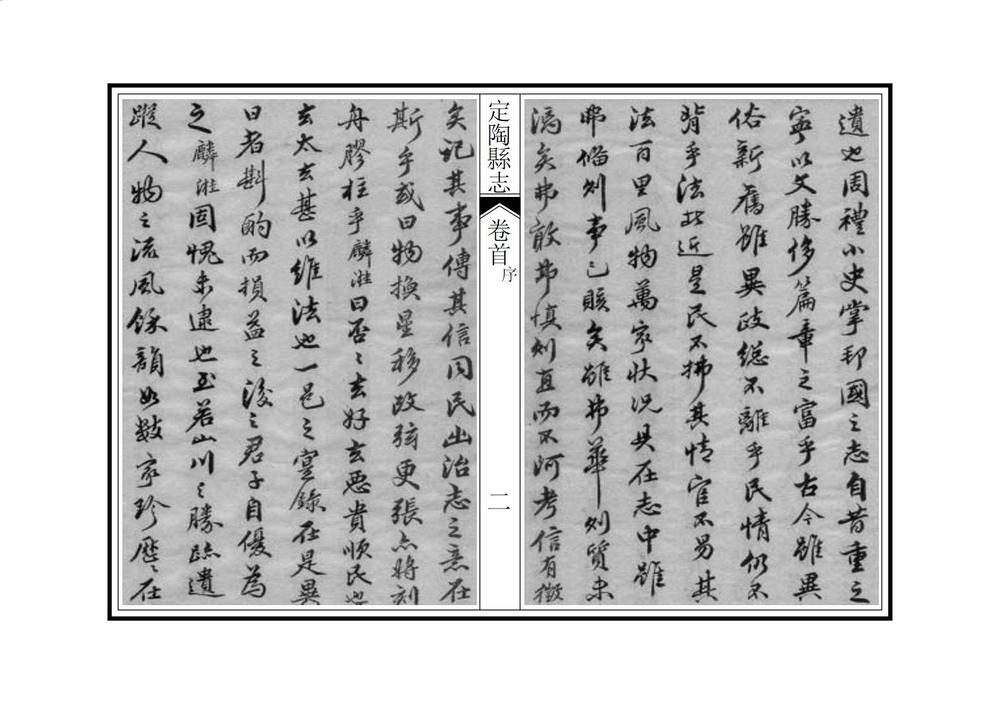 遺也周禮小史掌邦國之志自昔重之
寧以文勝侈篇章之富乎古今雖異
俗新舊雖異政總不離乎民情仍不
背乎法此近是民不拂其情官不易其
法百里風物萬家狀況具在志中雖
弗脩刻事已賅矣雖弗華刻質未
漓矣弗敢弗慎刻直而不阿考信有徵
定陶縣志
卷首
序
二
矣記其事傳其信同民出治志之意在
斯乎或曰物換星移改弦更張亦將刻
舟膠柱乎麟洲曰否否去好去惡貴順民也
去太去甚以維法也一邑之實錄在是異
日者斟酌而損益之後之君子自優為
之麟洲固愧未逮也至若山川之勝蹟遺
蹤人物之流風餘韻如數家珍歷歷在